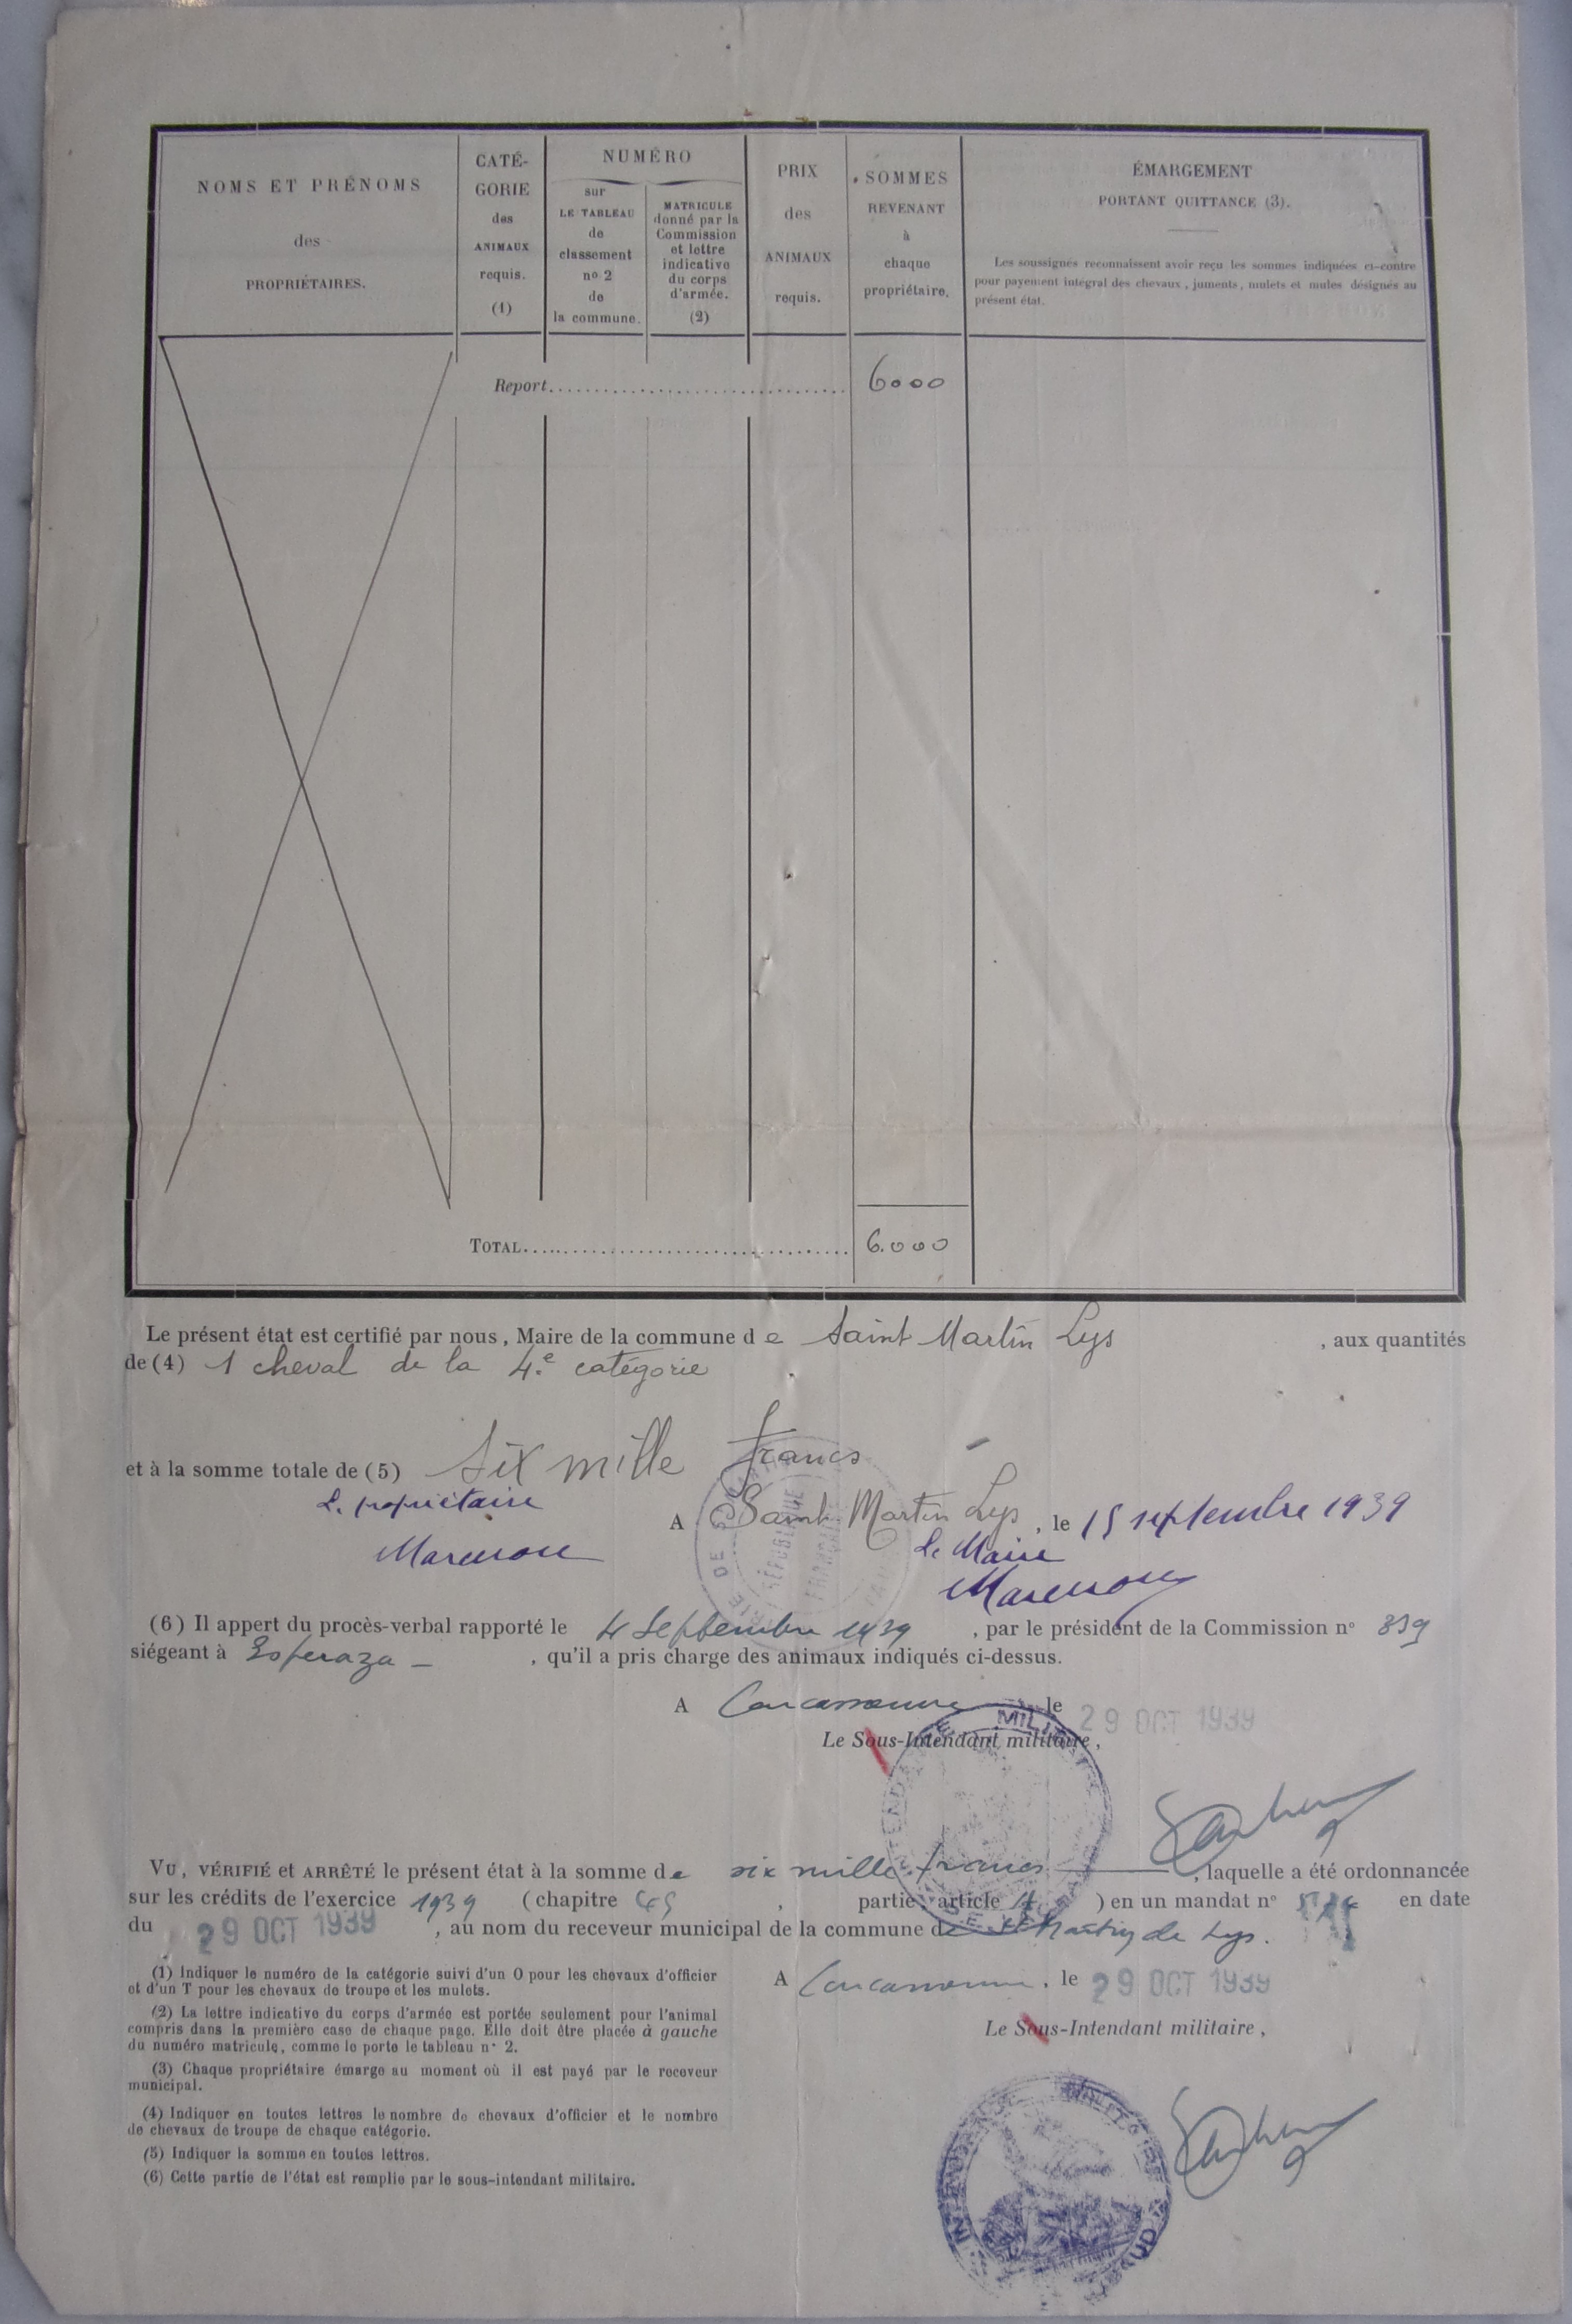 NOMS ET PRÉNOMS
des
PROPRIÉTAIRES.
CATÉ-
GORIE
des
ANIMAUX
requis.
(1)
NUMÉRO
sur
LE TABLEAU
de
classement
no 2
de
la commune.
MATRICULE
donné par la
Commission
et lettre
indicative
du corps
d'armée.
(2)
PRIX
des
ANIMAUX
requis.
SOMMES
REVENANT
à
chaque
propriétaire.
ÉMARGEMENT
PORTANT QUITTANCE (3).
Les soussignés reconnaissent avoir reçu les sommes indiquées ci-contre
pour payement intégral des chevaux, juments, mulets et mules désignés au
présent état.
Report.................................. 6000
TOTAL.................................... 6.000
Le présent état est certifié par nous, Maire de la commune de Saint Martin Lys, aux quantités
de (4) 1 cheval de la 4.e catégorie
et à la somme totale de (5) Six mille francs
Le propriétaire
A Saint Martin Lys, le 15 septembre 1939
Le Maire
(6) Il appert du procès-verbal rapporté le 4 Septembre 1939, par le président de la Commission n° 839
siégeant à Esperaza -, qu'il a pris charge des animaux indiqués ci-dessus.
A Carcassonne le 29 OCT 1939
Le Sous-Intendant militaire,
VU, VÉRIFIÉ et ARRÊTÉ le présent état à la somme de six mille francs, laquelle a été ordonnancée
sur les crédits de l'exercice 1939 (chapitre , partie, article ) en un mandat n° en date
du 29 OCT 1939, au nom du receveur municipal de la commune de St Martin de Lys.
A Carcassonne, le 29 OCT 1939
Le Sous-Intendant militaire,
(1) Indiquer le numéro de la catégorie suivi d'un O pour les chevaux d'officier
et d'un T pour les chevaux de troupe et les mulets.
(2) La lettre indicative du corps d'armée est portée seulement pour l'animal
compris dans la première case de chaque page. Elle doit être placée à gauche
du numéro matricule, comme le porte le tableau n° 2.
(3) Chaque propriétaire émarge au moment où il est payé par le receveur
municipal.
(4) Indiquer en toutes lettres le nombre de chevaux d'officier et le nombre
de chevaux de troupe de chaque catégorie.
(5) Indiquer la somme en toutes lettres.
(6) Cette partie de l'état est remplie par le sous-intendant militaire.